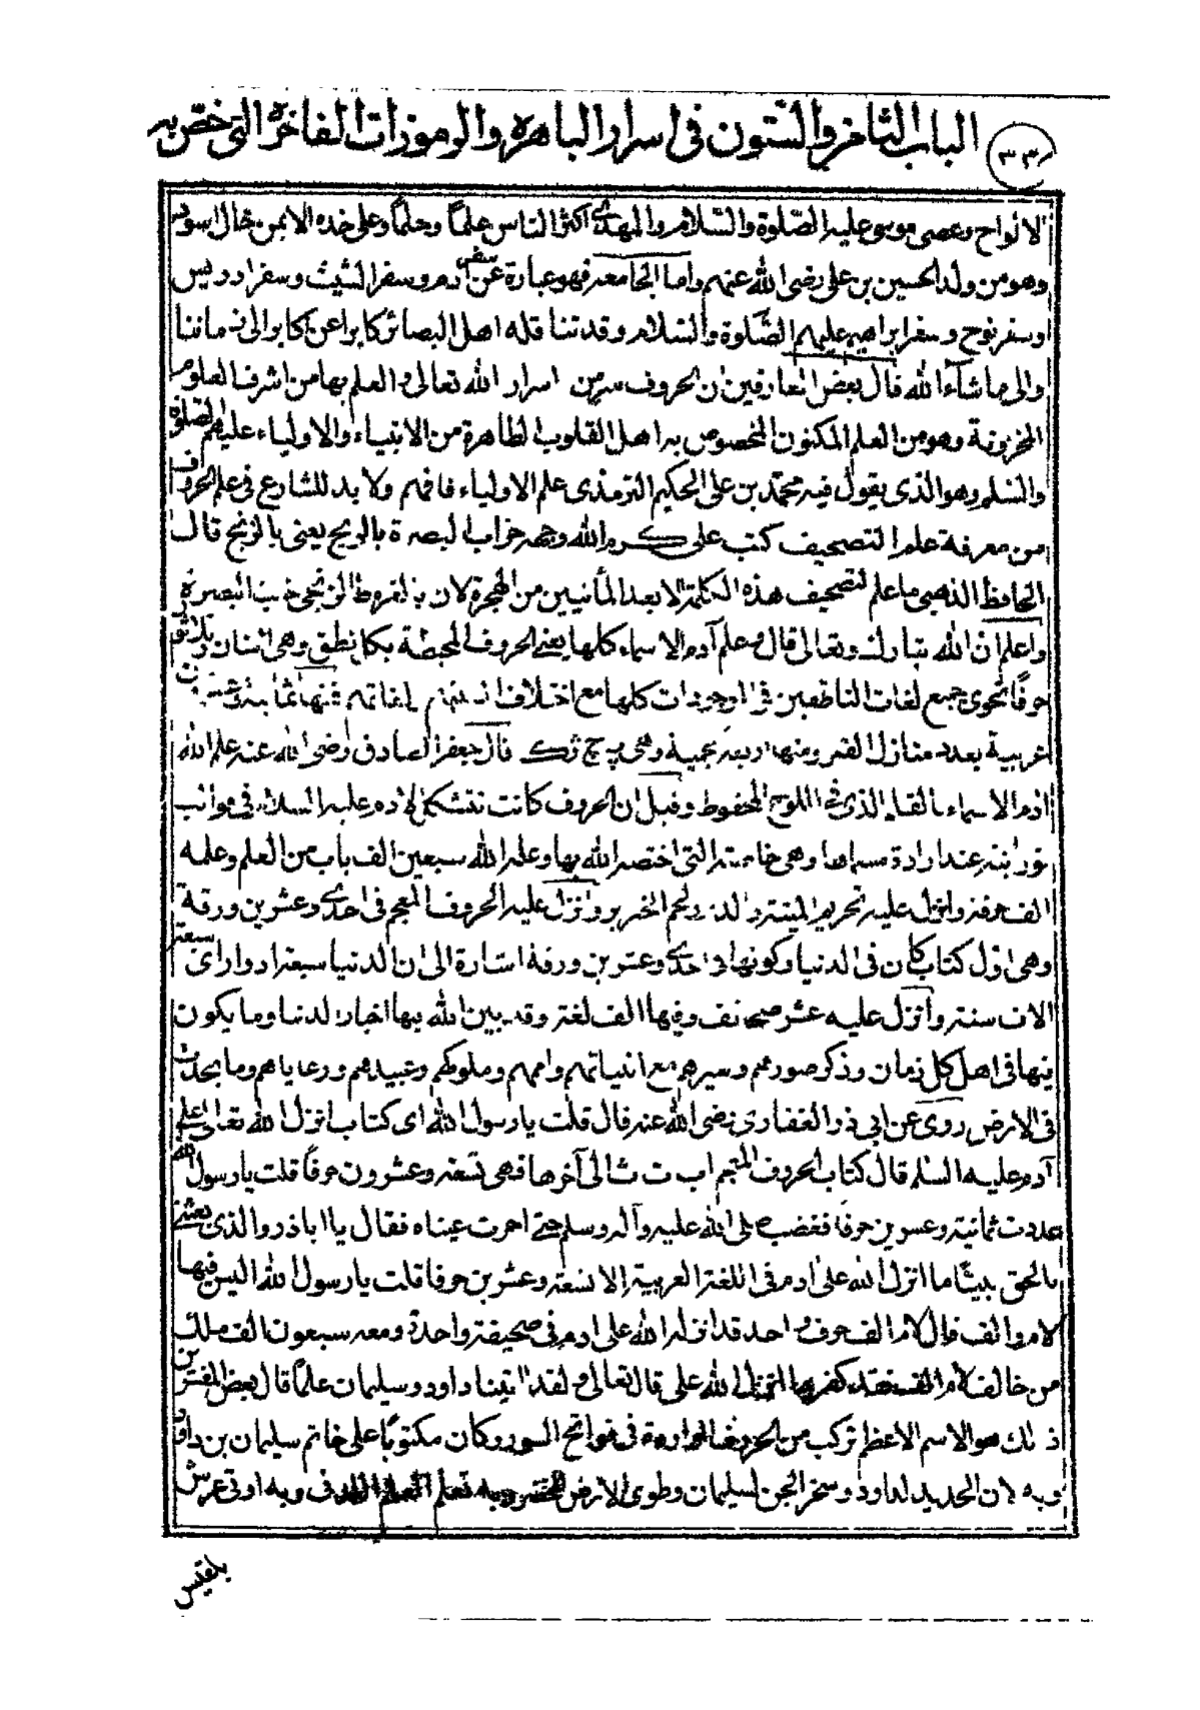 ٣٣
الباب الثامن والستون في اسرار الباهرة والرموزات الفاخرة التي خص به
الالواح وعصى موسى عليه الصلوة والسلام والمهدي اكثر الناس علماً وحلماً وعلى خده الايمن خال اسود
وهو من ولد الحسين بن علي رضى الله عنهم واما الجامعه فهو عبارة عن سفر آدم وسفر الشيث وسفر ادريس
وسفر نوح وسفر ابراهيم عليهم الصلوة والسلام وقد تناقله اهل البصائر كابرا عن كابر الى زماننا
والى ما شاء الله قال بعض العارفين ان الحروف سر من اسرار الله تعالى والعلم بها من اشرف العلوم
المخزونة وهو من العلم المكنون المخصوص به اهل القلوب الطاهرة من الانبياء والاولياء عليهم الصلوة
والسلم وهو الذى يقول فيه محمد بن على الحكيم الترمذى علم الاولياء فافهم ولا بد للشارع في علم الحروف
من معرفة علم التصحيف كتب على كرم الله وجهه خراب البصرة بالريح يعنى بالزنج قال
الحافظ الذهبى ما علم لتصحيف هذه الكلمة الا بعد المأتين من الهجرة لان بالقروط الزنجى خربت البصرة
واعلم ان الله تبارك وتعالى قال وعلم آدم الاسماء كلها يعنى الحروف المحيطة بكل نطق وهى اثنان وثلاثون
حرفا تحوى جميع لغات الناطقين كلها مع اختلاف لغاتهم فمنها ثمانية وعشرون
عربية بعدد منازل القمر ومنها اربعة عجمية وهى پ چ ژ ك قال جعفر الصادق رضى الله عنه علم الله
آدم الاسماء بالقلم الذى فى اللوح المحفوظ وقيل ان الحروف كانت تتشكل لآدم عليه السلام فى قوالب
نورانية عند ارادة مسماها وهى خاصته التى اختصه الله بها وعلمه الله سبعين الف باب من العلم وعلمه
الف حرفة وانزل عليه تحريم الميتة والدم ولحم الخنزير وانزل عليه الحروف المعجم فى احدى وعشرين ورقة
وهى اول كتاب كان فى الدنيا وكونها فى احدى وعشرين ورقة اشارة الى ان الدنيا سبعة ادوار اى سبعة
الاف سنة وانزل عليه عشر صحائف وفيها الف لغة وقد بين الله بها اخبار الدنيا وما يكون
فيها فى اهل كل زمان وذكر صورهم وسيرهم مع انبيائهم واممهم وملوكهم وعبيدهم ورعاياهم وما يحدث
فى الارض روى عن ابى ذر الغفارى رضى الله عنه قال قلت يا رسول الله اى كتاب انزل الله تعالى على
آدم عليه السلم قال كتاب الحروف المعجم ا ب ت ث الى آخرها فهى تسعة وعشرون حرفاً قلت يا رسول الله
عددت ثمانية وعشرين حرفا فغضب صلى الله عليه وآله وسلم حتى احمرت عيناه فقال يا ابا ذر والذى بعثنى
بالحق نبيًا ما انزل الله على آدم فى اللغة العربية إلا تسعة وعشرين حرفا قلت يا رسول الله اليس فيها
لام والف قال لام الف حرف واحد قد انزله الله على ادم فى صحيفة واحدة ومعه سبعون الف ملك
من خالف لام الف فقد كفر بما انزل الله على قال تعالى ولقد اتينا داود وسليمان علمًا قال بعض المفسرين
ذلك هو الاسم الاعظم تركب من الحروف الواردة فى فواتح السور وكان مكتوبًا على خاتم سليمان بن داود
وبه لان الحديد لداود وسخر الجن لسليمان وطوى الارض للخضر وبه تعلم العلم اللدنى وبه اوتى عرش
بلقيس